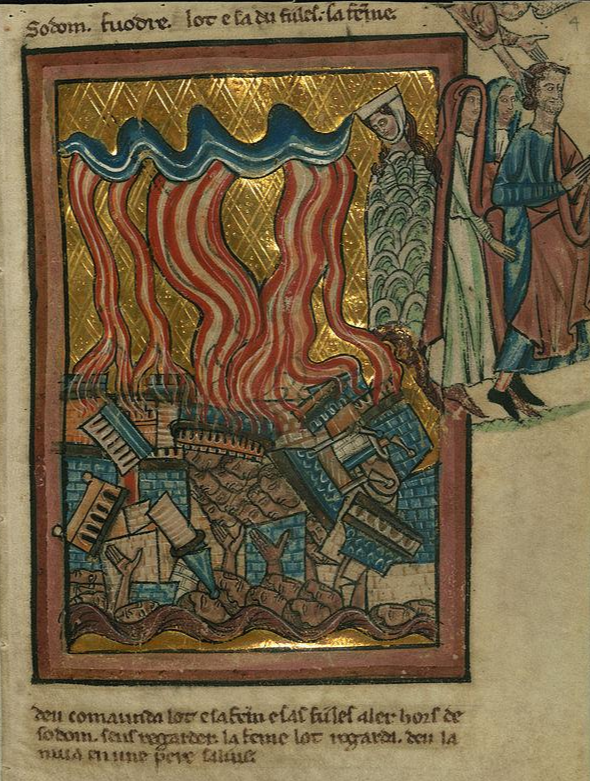 Sodom. fuodre. lot e sa du fules. sa feme.
4
deu comaunda lot e sa fem e sas fules aler hors de
sodom. sens regarder. la feme lot regarda. deu la
mua en une pere salius.